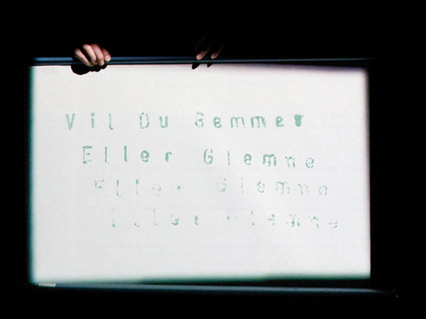 Vil Du Gemmer
Eller Glemme
Eller Glemme
Eller Glemme